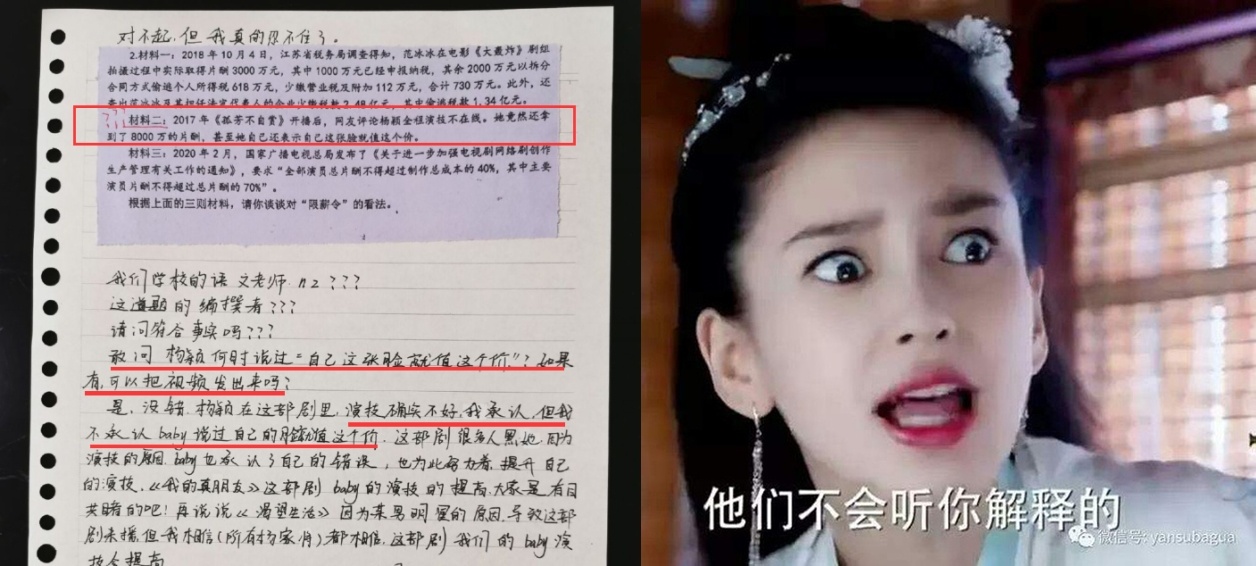 对不起,但我真的忍不住了。
2.材料一:2018年10月4日,江苏省税务局调查得知,范冰冰在电影《大轰炸》剧组
拍摄过程中实际取得片酬3000万元,其中1000万元已经申报纳税,其余2000万元以拆分
合同方式偷逃个人所得税618万元,少缴营业税及附加112万元,合计730万元。此外,还
查出范冰冰及其担任法定代表人的企业少缴税款2.48亿元,其中偷逃税款1.34亿元。
???材料二:2017年《孤芳不自赏》开播后,网友评论杨颖全程演技不在线。她竟然还拿
到了8000万的片酬,甚至她自己还表示自己这张脸就值这个价。
材料三:2020年2月,国家广播电视总局发布了《关于进一步加强电视剧网络剧创作
生产管理有关工作的通知》,要求“全部演员总片酬不得超过制作总成本的40%,其中主要
演员片酬不得超过总片酬的70%”。
根据上面的三则材料,请你谈谈对“限薪令”的看法。
我们学校的语文老师 n2???
这道题的编撰者???
请问符合事实吗???
敢问杨颖何时说过“自己这张脸就值这个价”?如果
有,可以把视频发出来吗?
是,没错,杨颖在这部剧里,演技确实不好,我承认,但我
不承认baby说过自己的脸就值这个价,这部剧很多人黑她,因为
演技的原因,baby也承认了自己的错误,也为此努力着,提升自己
的演技,《我的真朋友》这部剧baby的演技的提高,大家是有目
共睹的吧!再说说《渴望生活》因为某男明星的原因,导致这部
剧未播,但我相信(所有杨家军)都相信,这部剧我们的baby演
技会提高
他们不会听你解释的
微信号:yansubagua